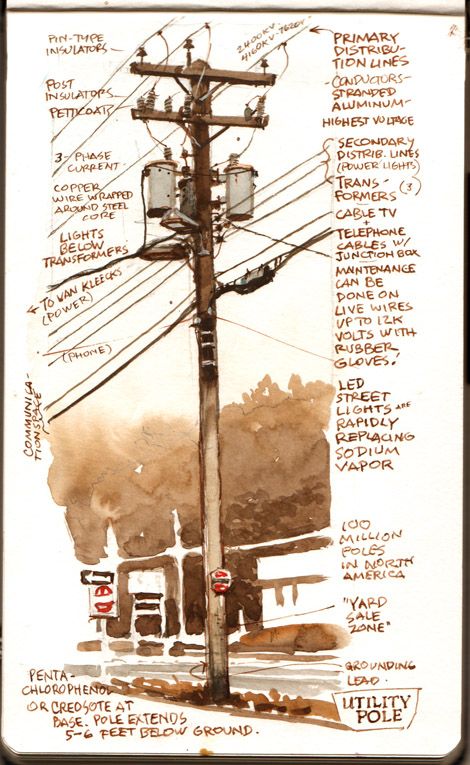 PIN-TYPE
INSULATORS
POST
INSULATORS
PETTICOATS
3-PHASE
CURRENT
COPPER
WIRE WRAPPED
AROUND STEEL
CORE
LIGHTS
BELOW
TRANSFORMERS
TO VAN KLEECKS
(POWER)
(PHONE)
COMMUNICA-
TION SPACE
2400KV-
4160KV-7620V
PRIMARY
DISTRIBU-
TION LINES
CONDUCTORS-
STRANDED
ALUMINUM-
HIGHEST VOLTAGE
SECONDARY
DISTRIB. LINES
(POWER, LIGHTS)
TRANS-
FORMERS (3)
CABLE TV
+
TELEPHONE
CABLES W/
JUNCTION BOX
MAINTENANCE
CAN BE
DONE ON
LIVE WIRES
UP TO 12K
VOLTS WITH
RUBBER
GLOVES!
LED
STREET
LIGHTS ARE
RAPIDLY
REPLACING
SODIUM
VAPOR
100
MILLION
POLES
IN NORTH
AMERICA
"YARD
SALE
ZONE"
GROUNDING
LEAD
PENTA-
CHLOROPHENOL
OR CREOSOTE AT
BASE. POLE EXTENDS
5-6 FEET BELOW GROUND.
UTILITY
POLE